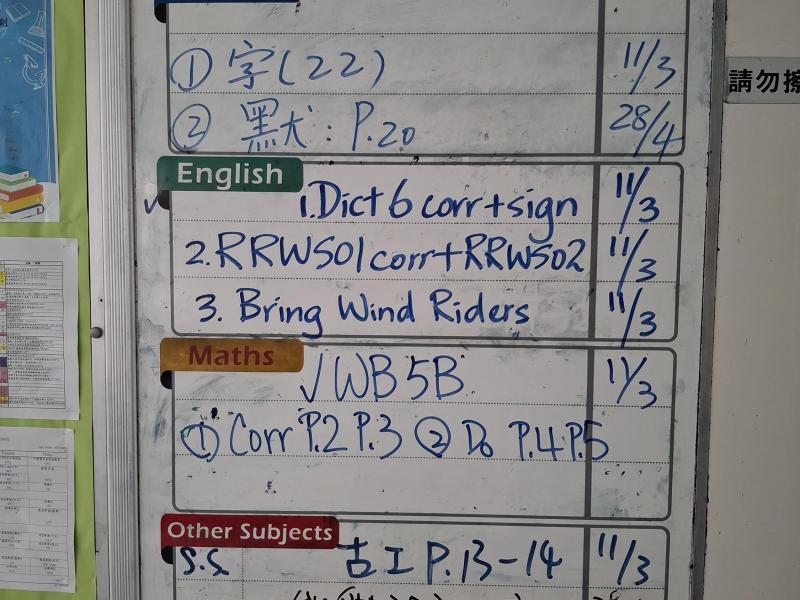 ① 字(22) 11/3
② 默犬: P.20 28/4
請勿擦
English
1. Dict 6 corr+sign 11/3
2. RRWS01 corr+RRWS02 11/3
3. Bring Wind Riders 11/3
Maths
✓WB 5B 11/3
① Corr P.2 P.3 ② Do P.4 P.5
Other Subjects
S.S. 古工 P.13-14 11/3